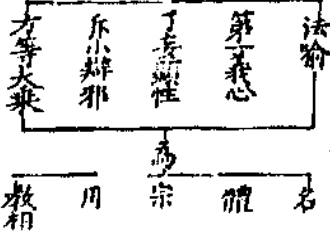 法喻
第一義心
了妄顯性
斥小辯邪
方等大乘
為
名
體
宗
用
教相